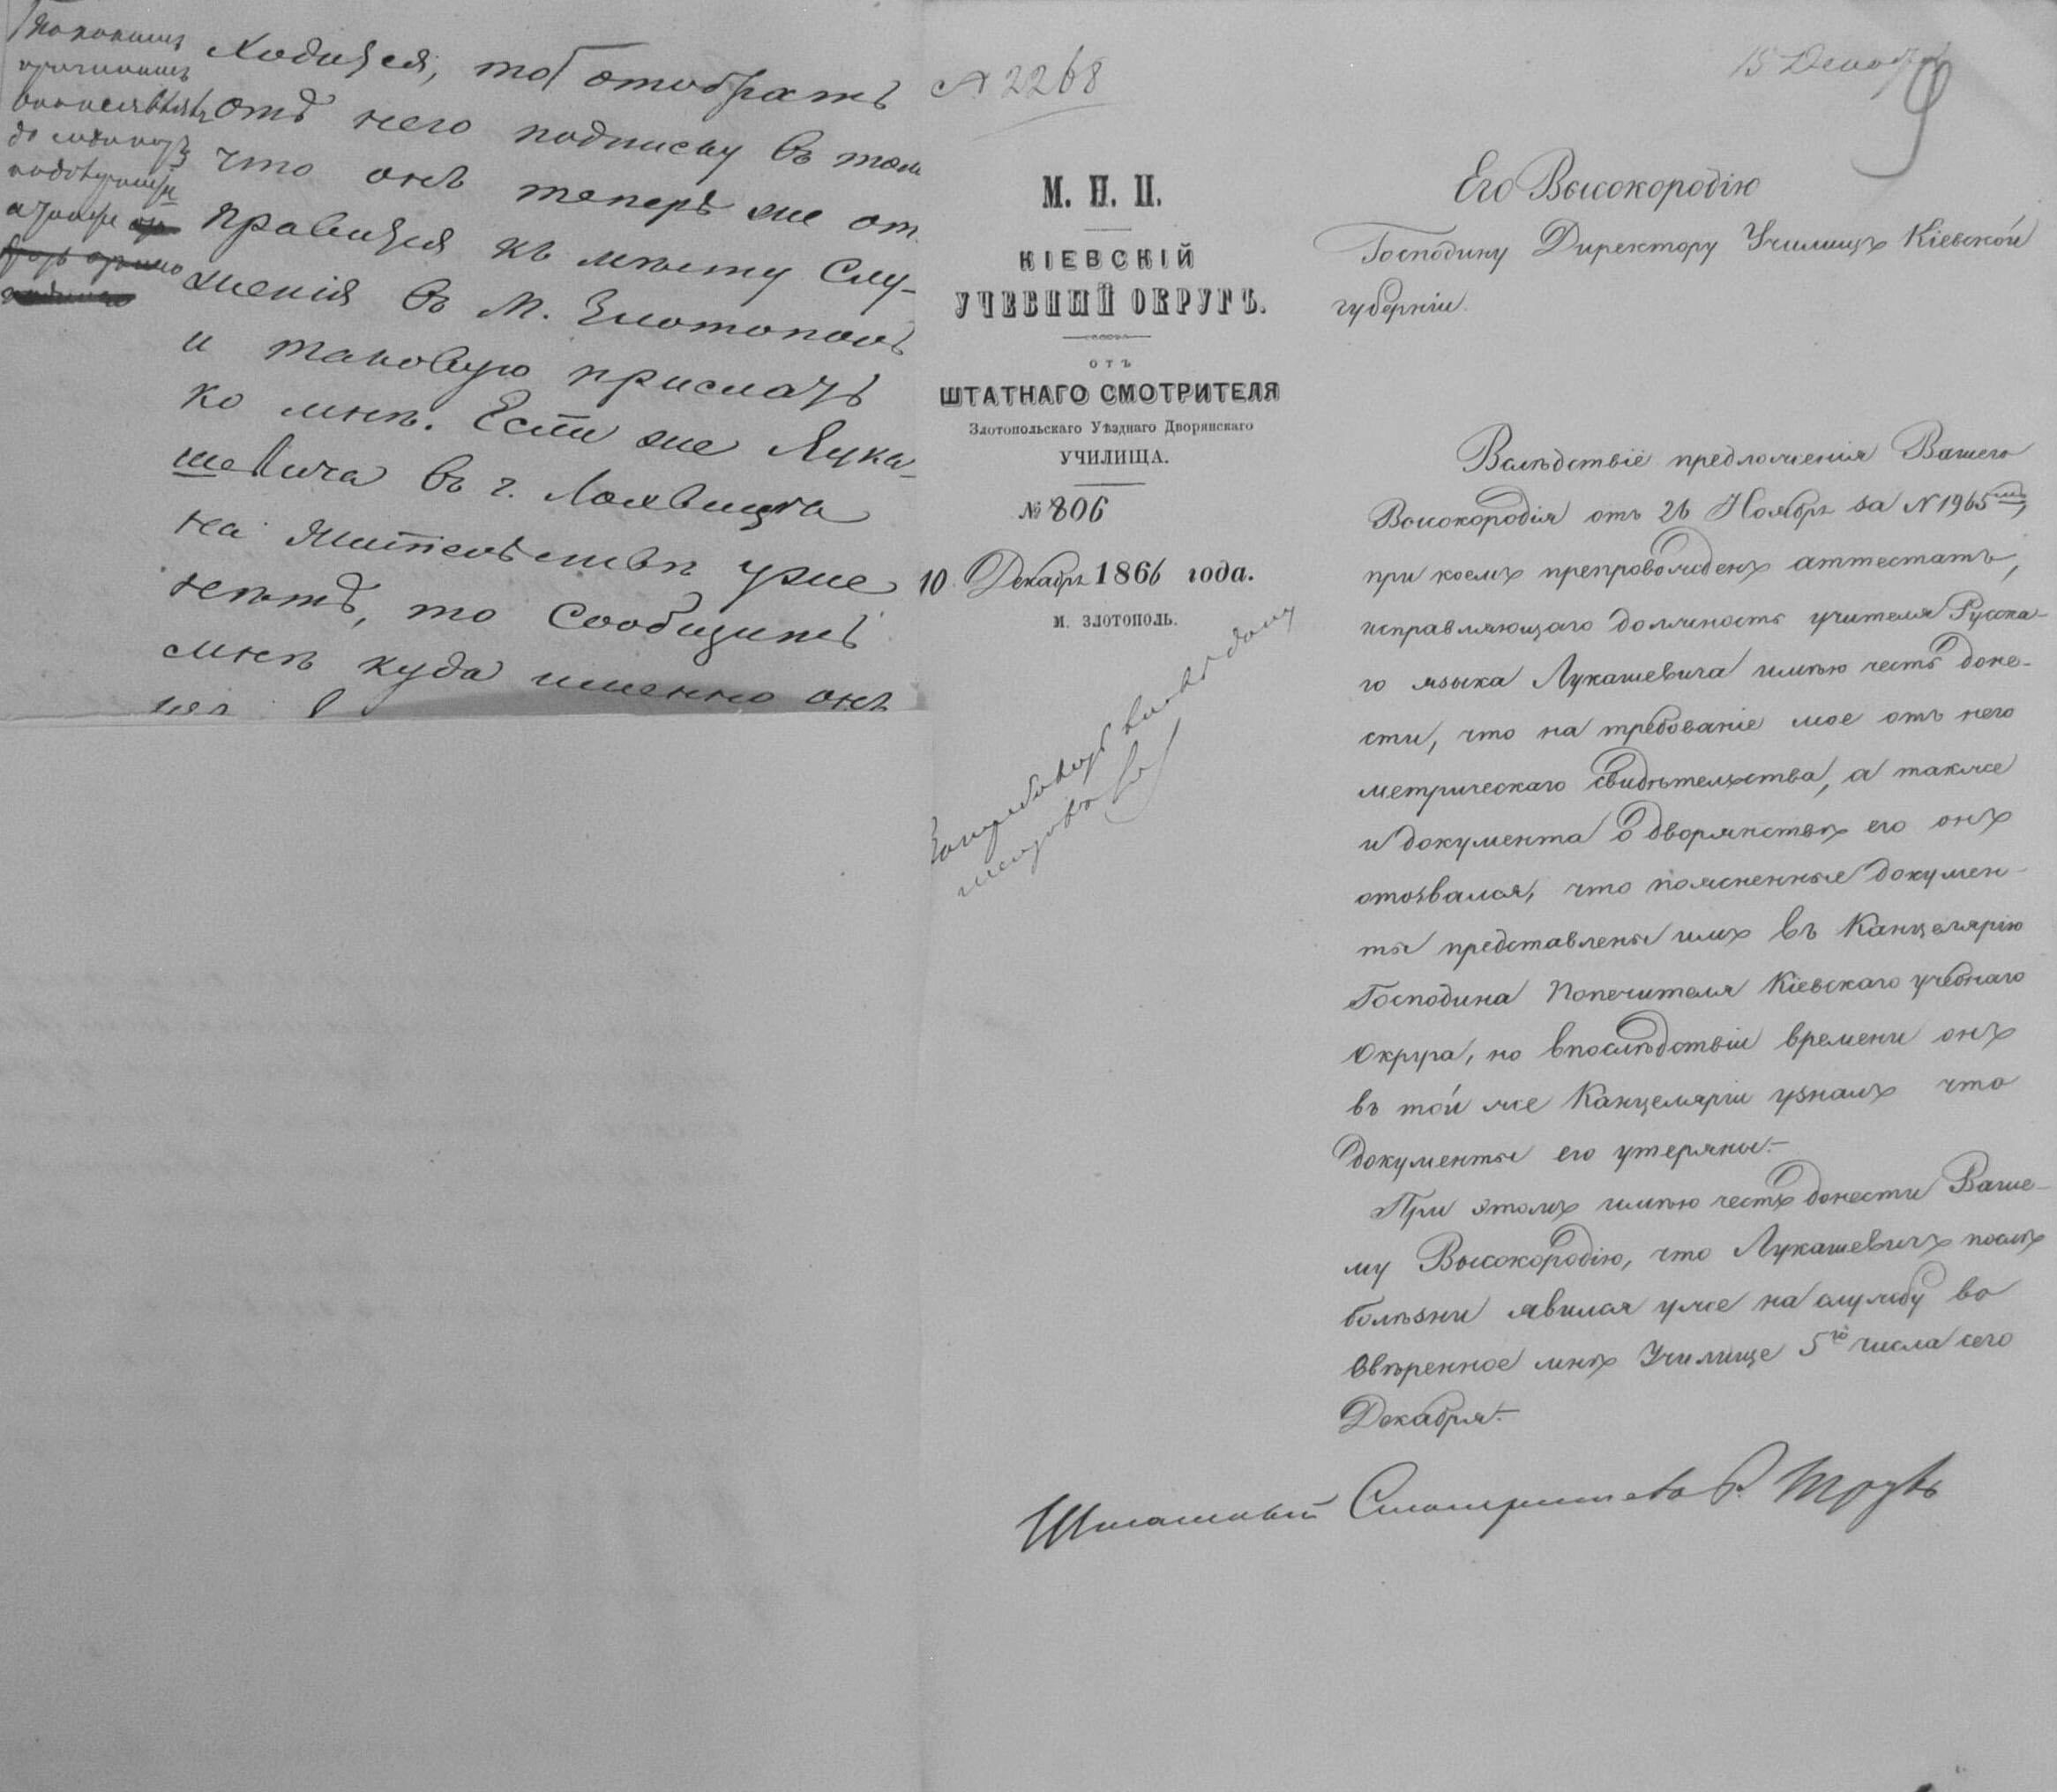 ходится, то отобрать
отъ него подписку въ том
что онъ теперь же от
правится къ мѣсту слу-
женія въ М. Златополь
и таковую прислать
ко мнѣ. Если же Лука-
шевича въ г. Лохвицѣ
на жительствѣ уже
нетъ, то сообщить
мнѣ куда именно онъ
№ 2268
М. Н. П.
КІЕВСКІЙ
УЧЕБНЫЙ ОКРУГЪ.
ОТЪ
ШТАТНАГО СМОТРИТЕЛЯ
Златопольскаго Уѣзднаго Дворянскаго
УЧИЛИЩА.
№ 806
10 Декабря 1866 года.
М. ЗЛОТОПОЛЬ.
15 Декабря
9
Его Высокородію
Господину Директору Училищъ Кіевской
губерніи.
Вслѣдствіе предложенія Вашего
Высокородія отъ 26 Ноября за N 1965мъ,
при коемъ препровожденъ аттестатъ,
исправляющаго должность учителя Русска-
го языка Лукашевича имѣю честь доне-
сти, что на требованіе мое отъ него
метрическаго свидѣтельства, а также
и документа о дворянствѣ его онъ
отозвался, что поясненные докумен-
ты представлены имъ въ Канцелярію
Господина Попечителя Кіевскаго учебнаго
Округа, но впослѣдствіи времени онъ
въ той же Канцеляріи узналъ что
документы его утеряны.-
При этомъ имѣю честь донести Ваше-
му Высокородію, что Лукашевичъ послѣ
болѣзни явился уже на службу во
ввѣренное мнѣ Училище 5го числа сего
Декабря.-
Штатный Смотритель